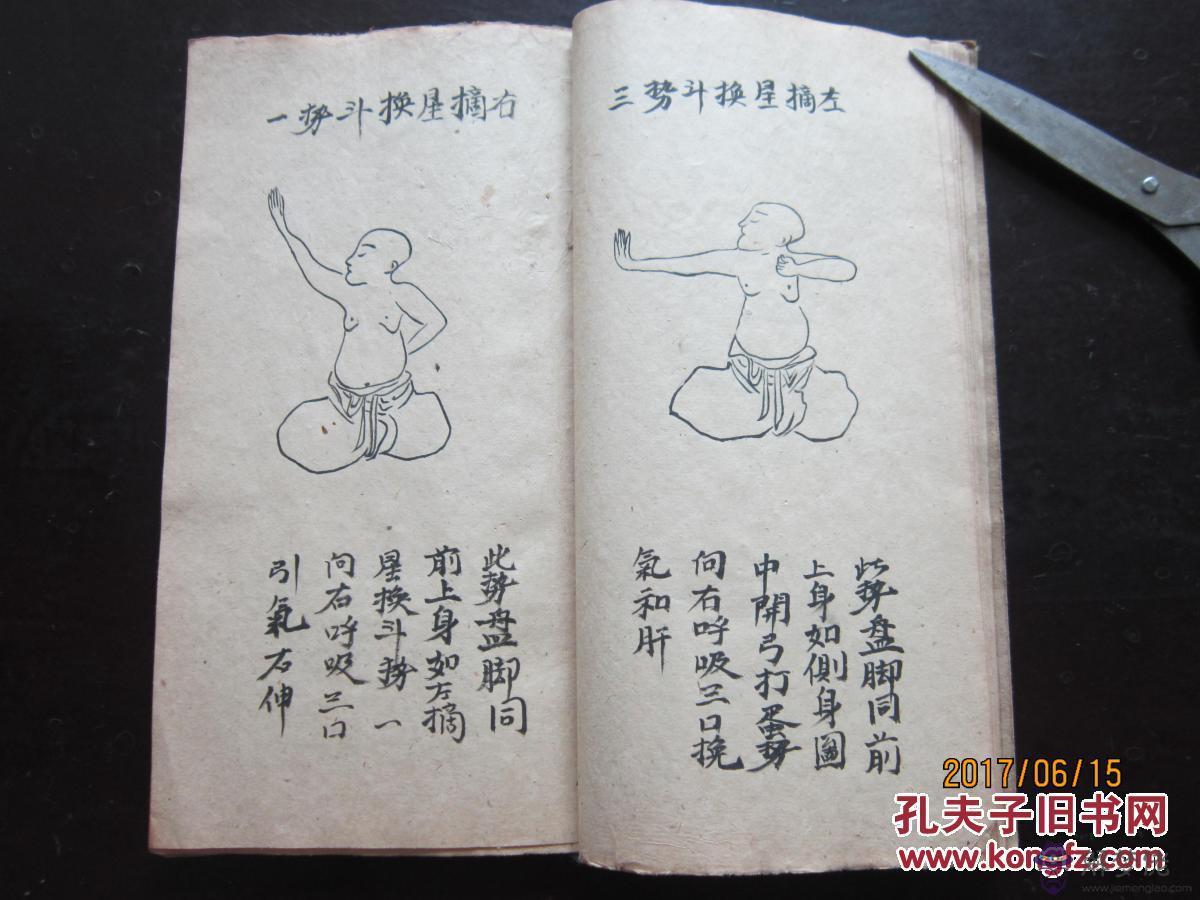 左摘星換斗勢三
此勢盘脚同前
上身如側身圖
中開弓打蛋勢
向右呼吸三口挽
氣和肝
右摘星換斗勢一
此勢盘脚同
前上身如左摘
星換斗勢一
向右呼吸三口
引氣右伸
2017/06/15
孔夫子旧书网
www.kongfz.com
www.jiemengleo.com